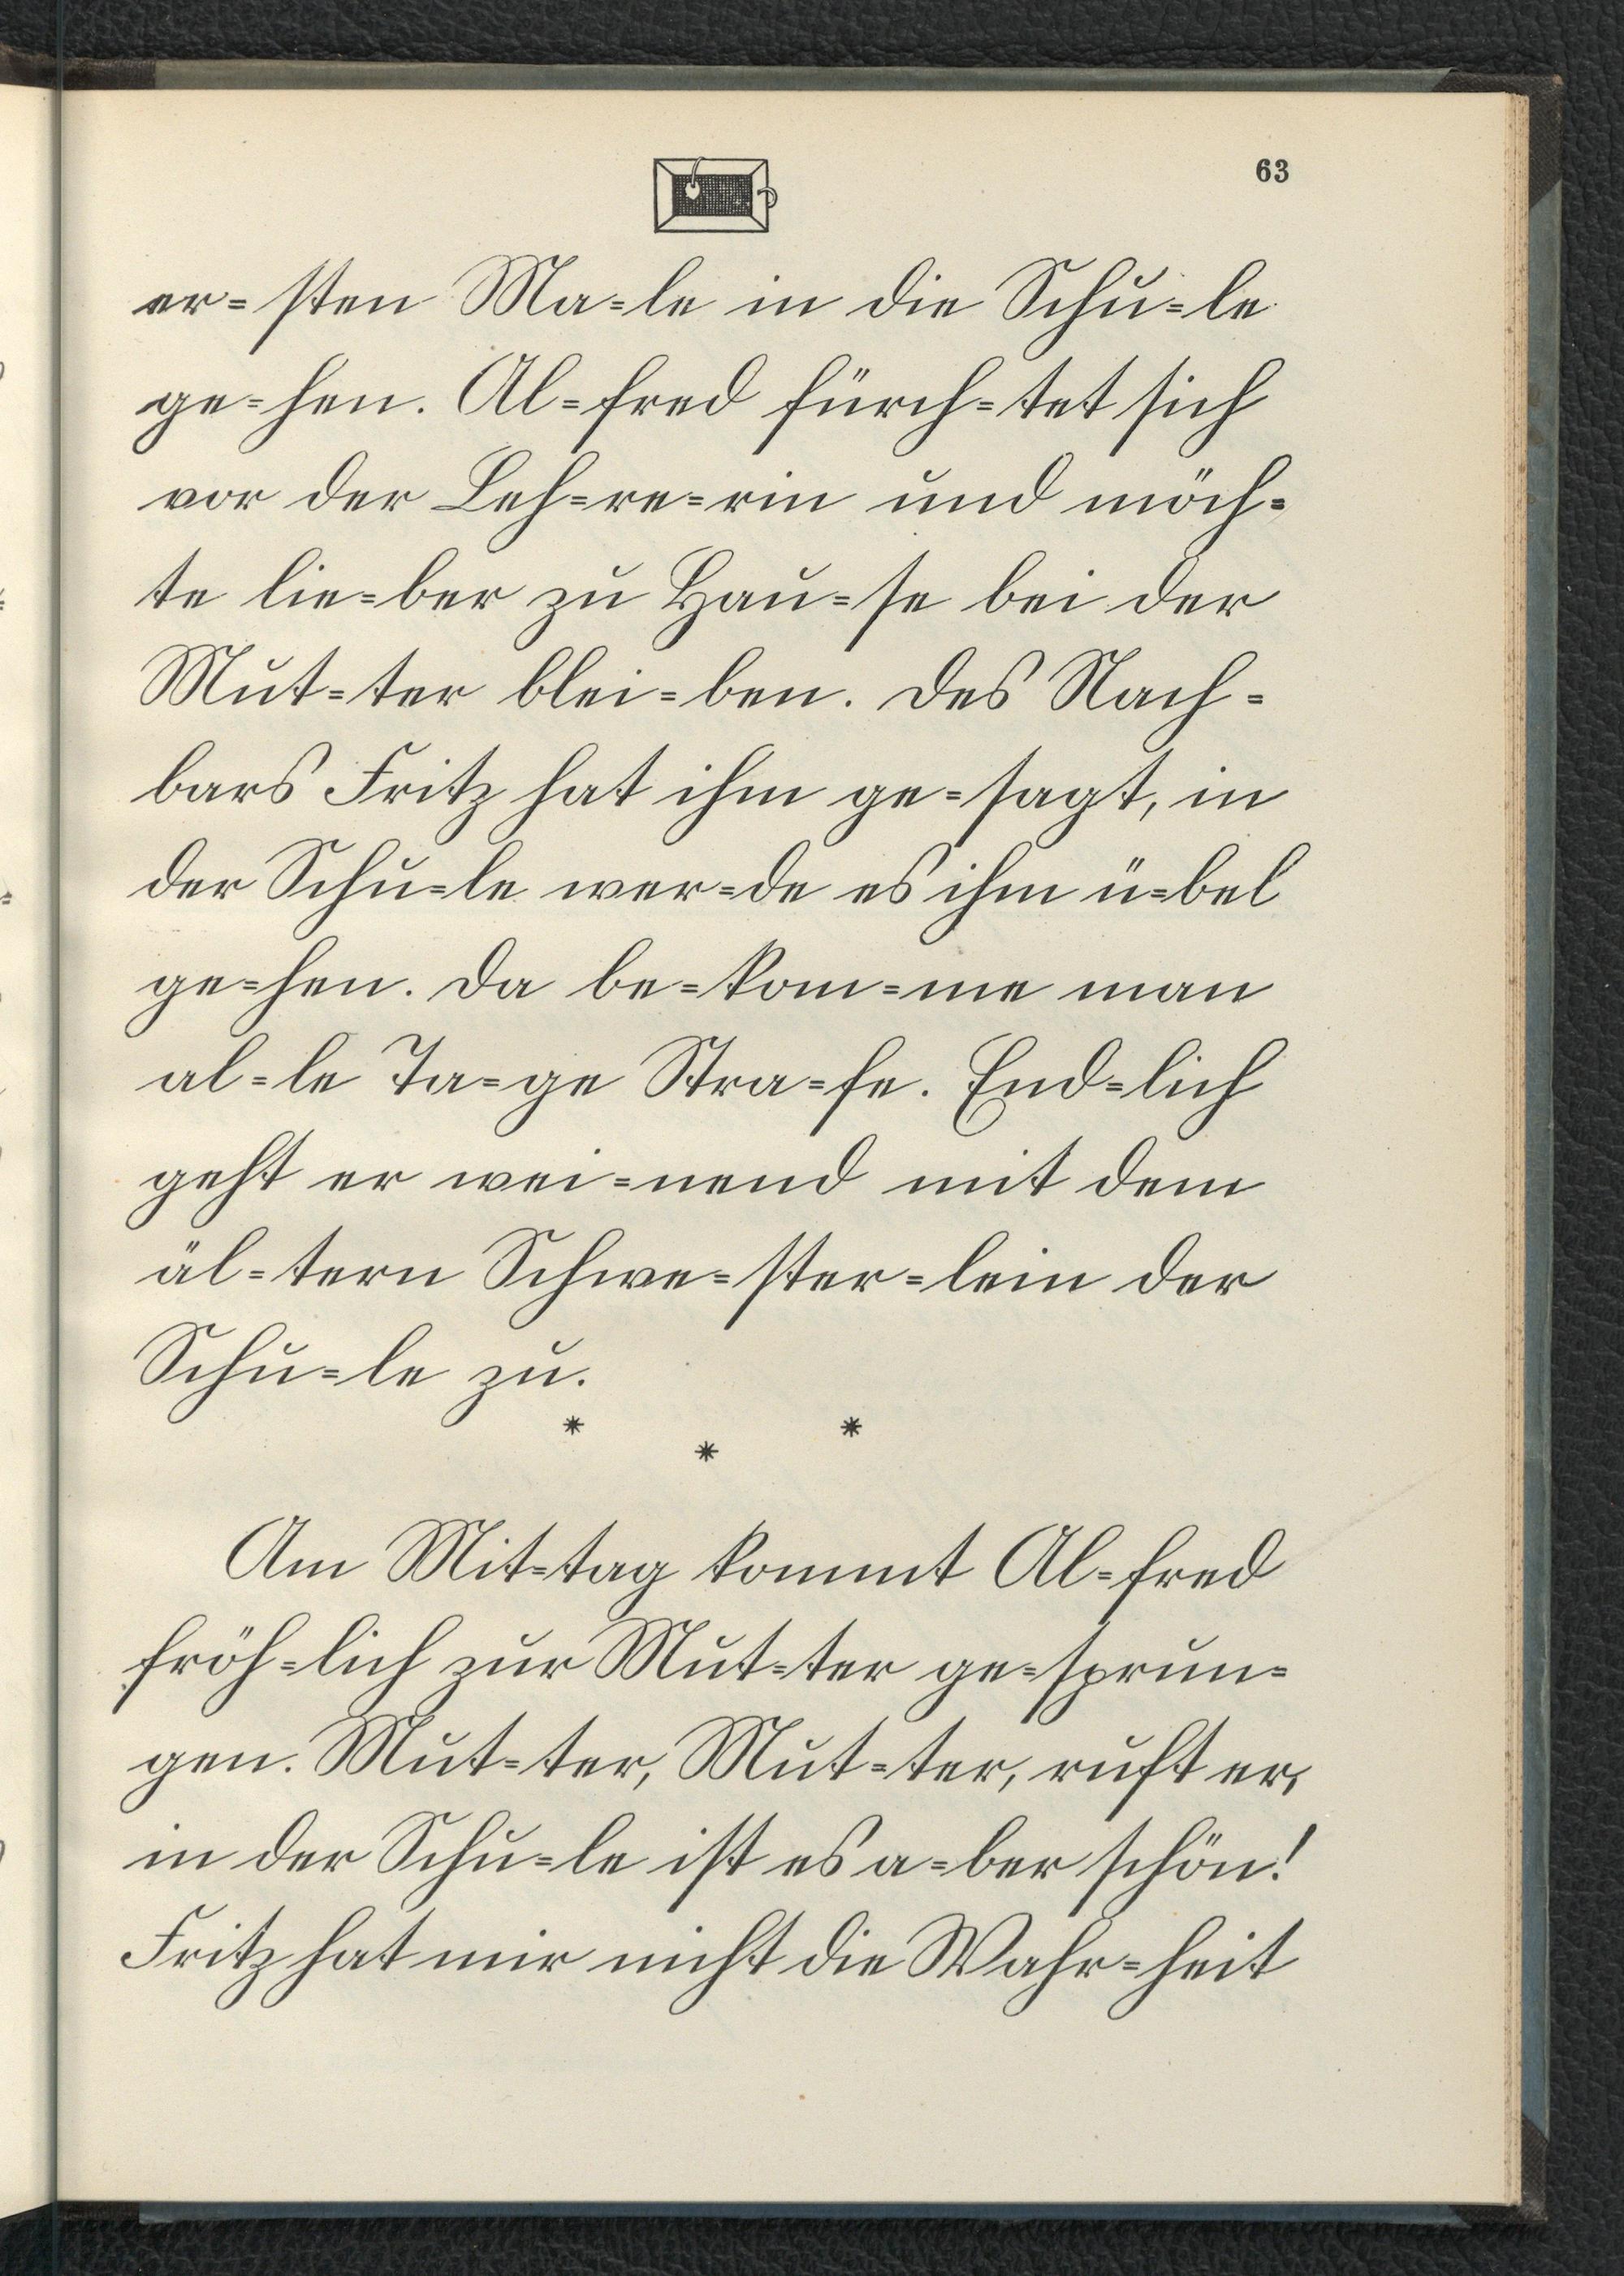 63
er=sten Ma=le in die Schu=le
ge=hen. Al=fred fürch=tet sich
vor der Leh=re=rin und möch=
te lie=ber zu Hau=se bei der
Mut=ter blei=ben. Des Nach=
bars Fritz hat ihm ge=sagt, in
der Schu=le wer=de es ihm ü=bel
ge=hen. Da be=kom=me man
al=le Ta=ge Stra=fe. End=lich
geht er wei=nend mit dem
äl=tern Schwe=ster=lein der
Schu=le zu.
* * *
Am Mit=tag kommt Al=fred
fröh=lich zur Mut=ter ge=sprun=
gen. Mut=ter, Mut=ter, ruft er,
in der Schu=le ist es a=ber schön!
Fritz hat mir nicht die Wahr=heit